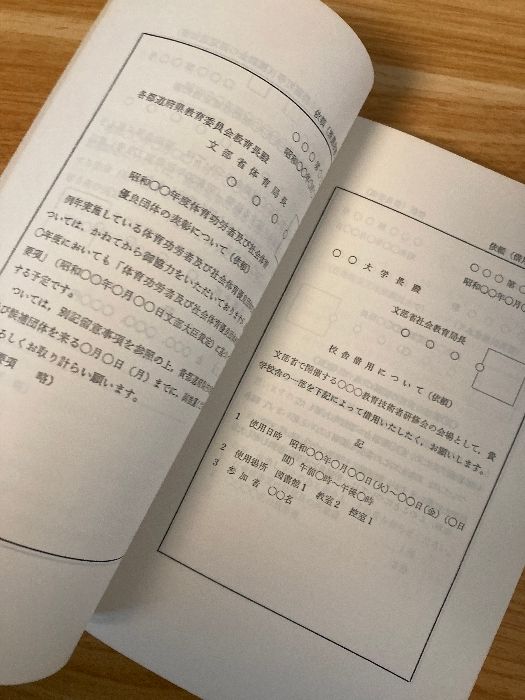 依頼
○○○第
昭和○○年○月
各都道府県教育委員会教育長殿
文部省体育局長
○○○○
昭和○○年度体育功労者及び社会体育
優良団体の表彰について（依頼）
例年実施している体育功労者及び社会体育優良団体
ついては，かねてから御協力をいただいておりますが
○年度においても「体育功労者及び社会体育優良団体
要項」（昭和○○年○月○○日文部大臣裁定）
する予定です。
ついては，別記留意事項を参照の上，
び候補団体を来る○月○日（月）までに，
ろしくお取り計らい願います。
要項　略）
依頼（借用
○○○第○
昭和○○年○月○
○○大学長殿
文部省社会教育局長
○○○○
校舎借用について（依頼）
文部省で開催する○○○教育技術者研修会の会場として，貴
学校舎の一部を下記によって借用いたしたく，お願いします。
記
1　使用日時　昭和○○年○月○○日（火）～○○日（金）（○日
間）午前○時～午後○時
2　使用場所　図書館1　教室2　控室1
3　参加者　○○名